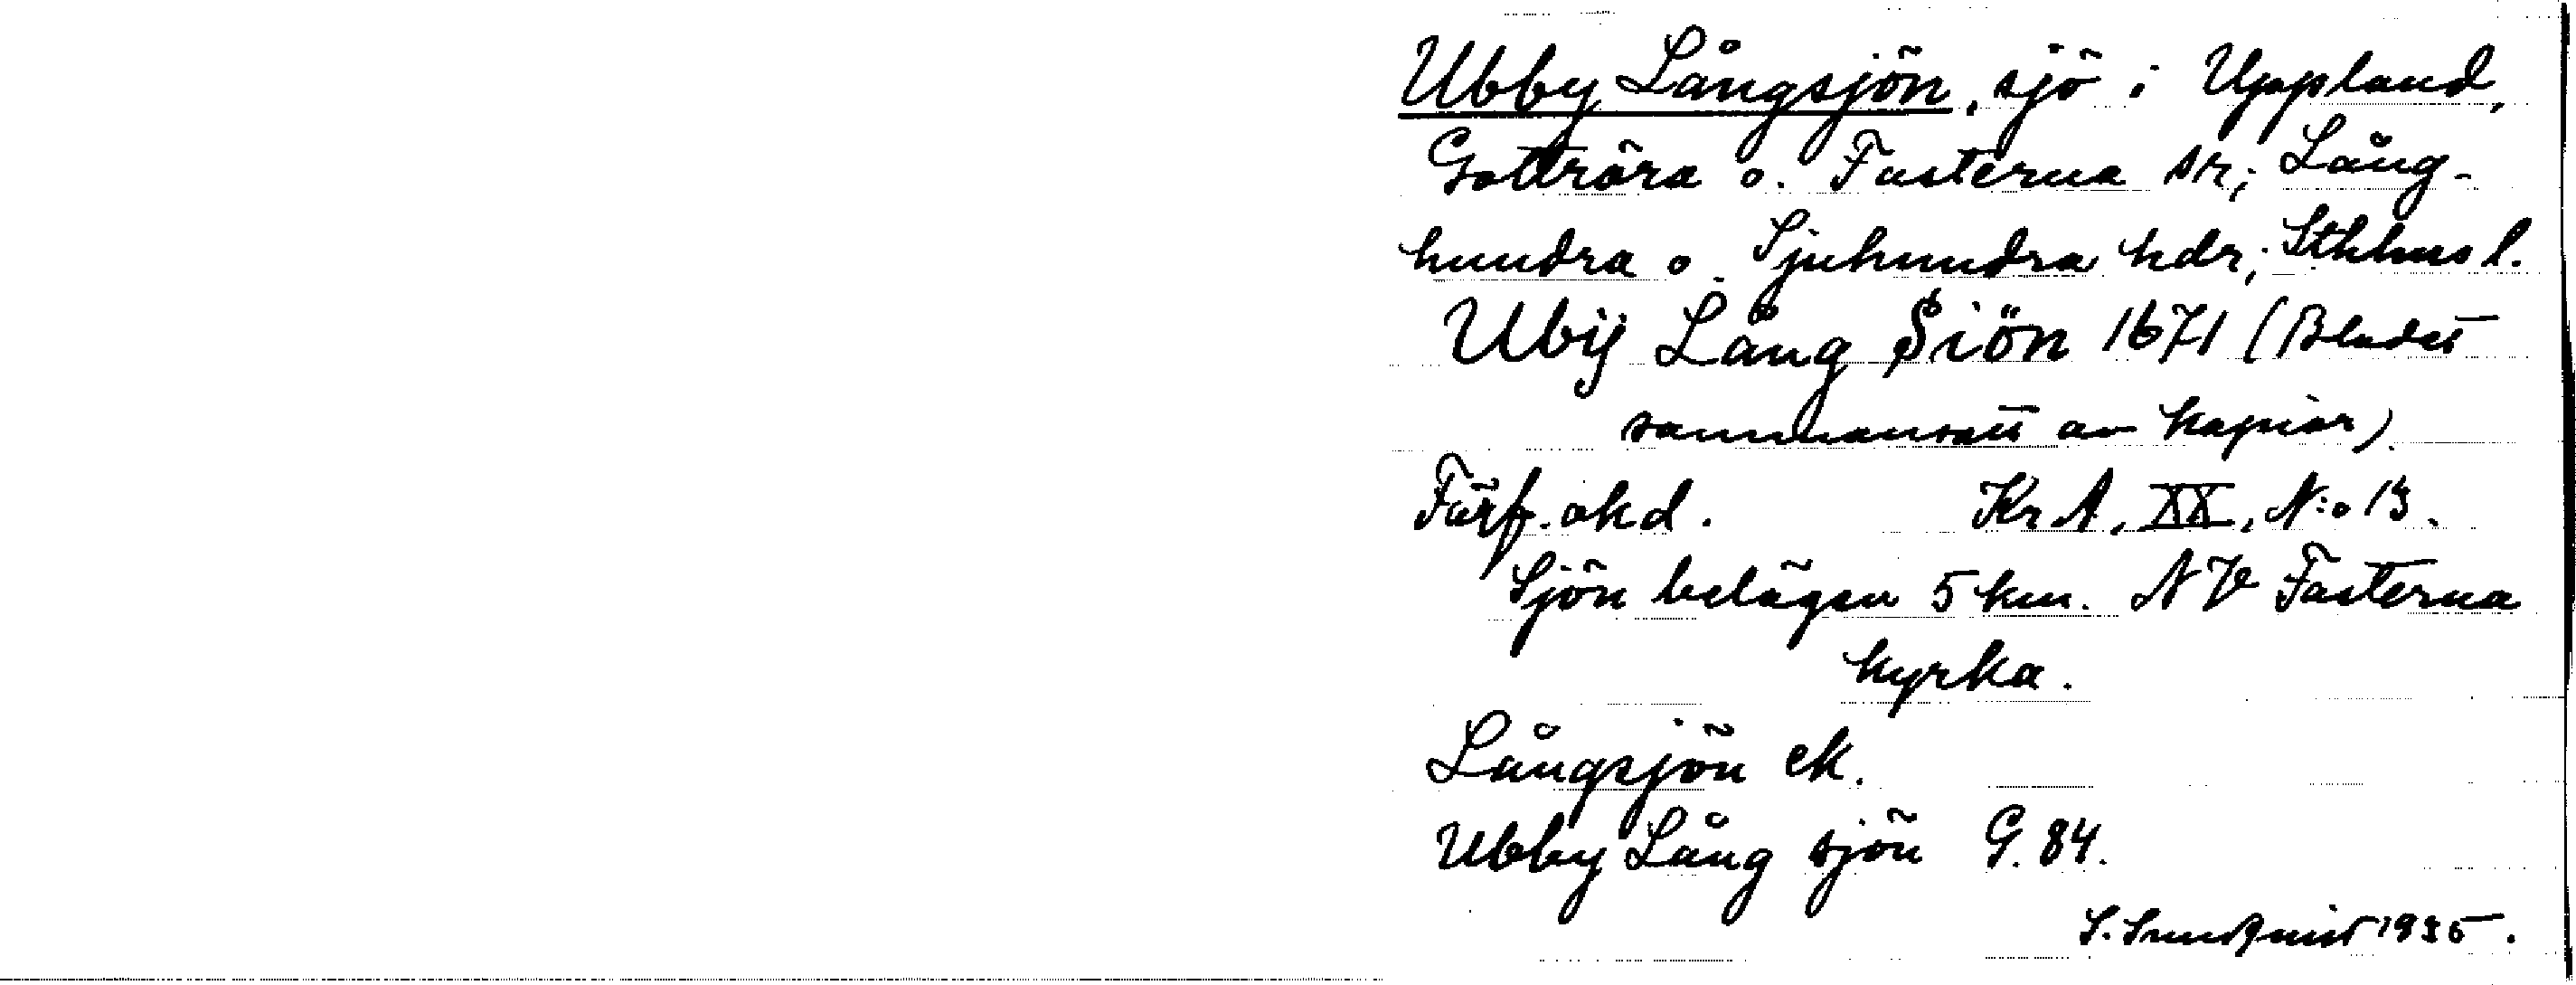 Ubby Långsjön, sjö i Uppland,
Gottröra o. Fasterna sr; Lång-
hundra o. Sjuhundra hdr; Sthlms l.
Ubÿ Lång Siön 1671 (Bladet
sammansatt av kopior).
Förf. okd. KrA, XX, N:o 13.
Sjön belägen 5 km. NV Fasterna
kyrka.
Långsjön ek.
Ubby Lång sjön G. 84.
S. 1935.